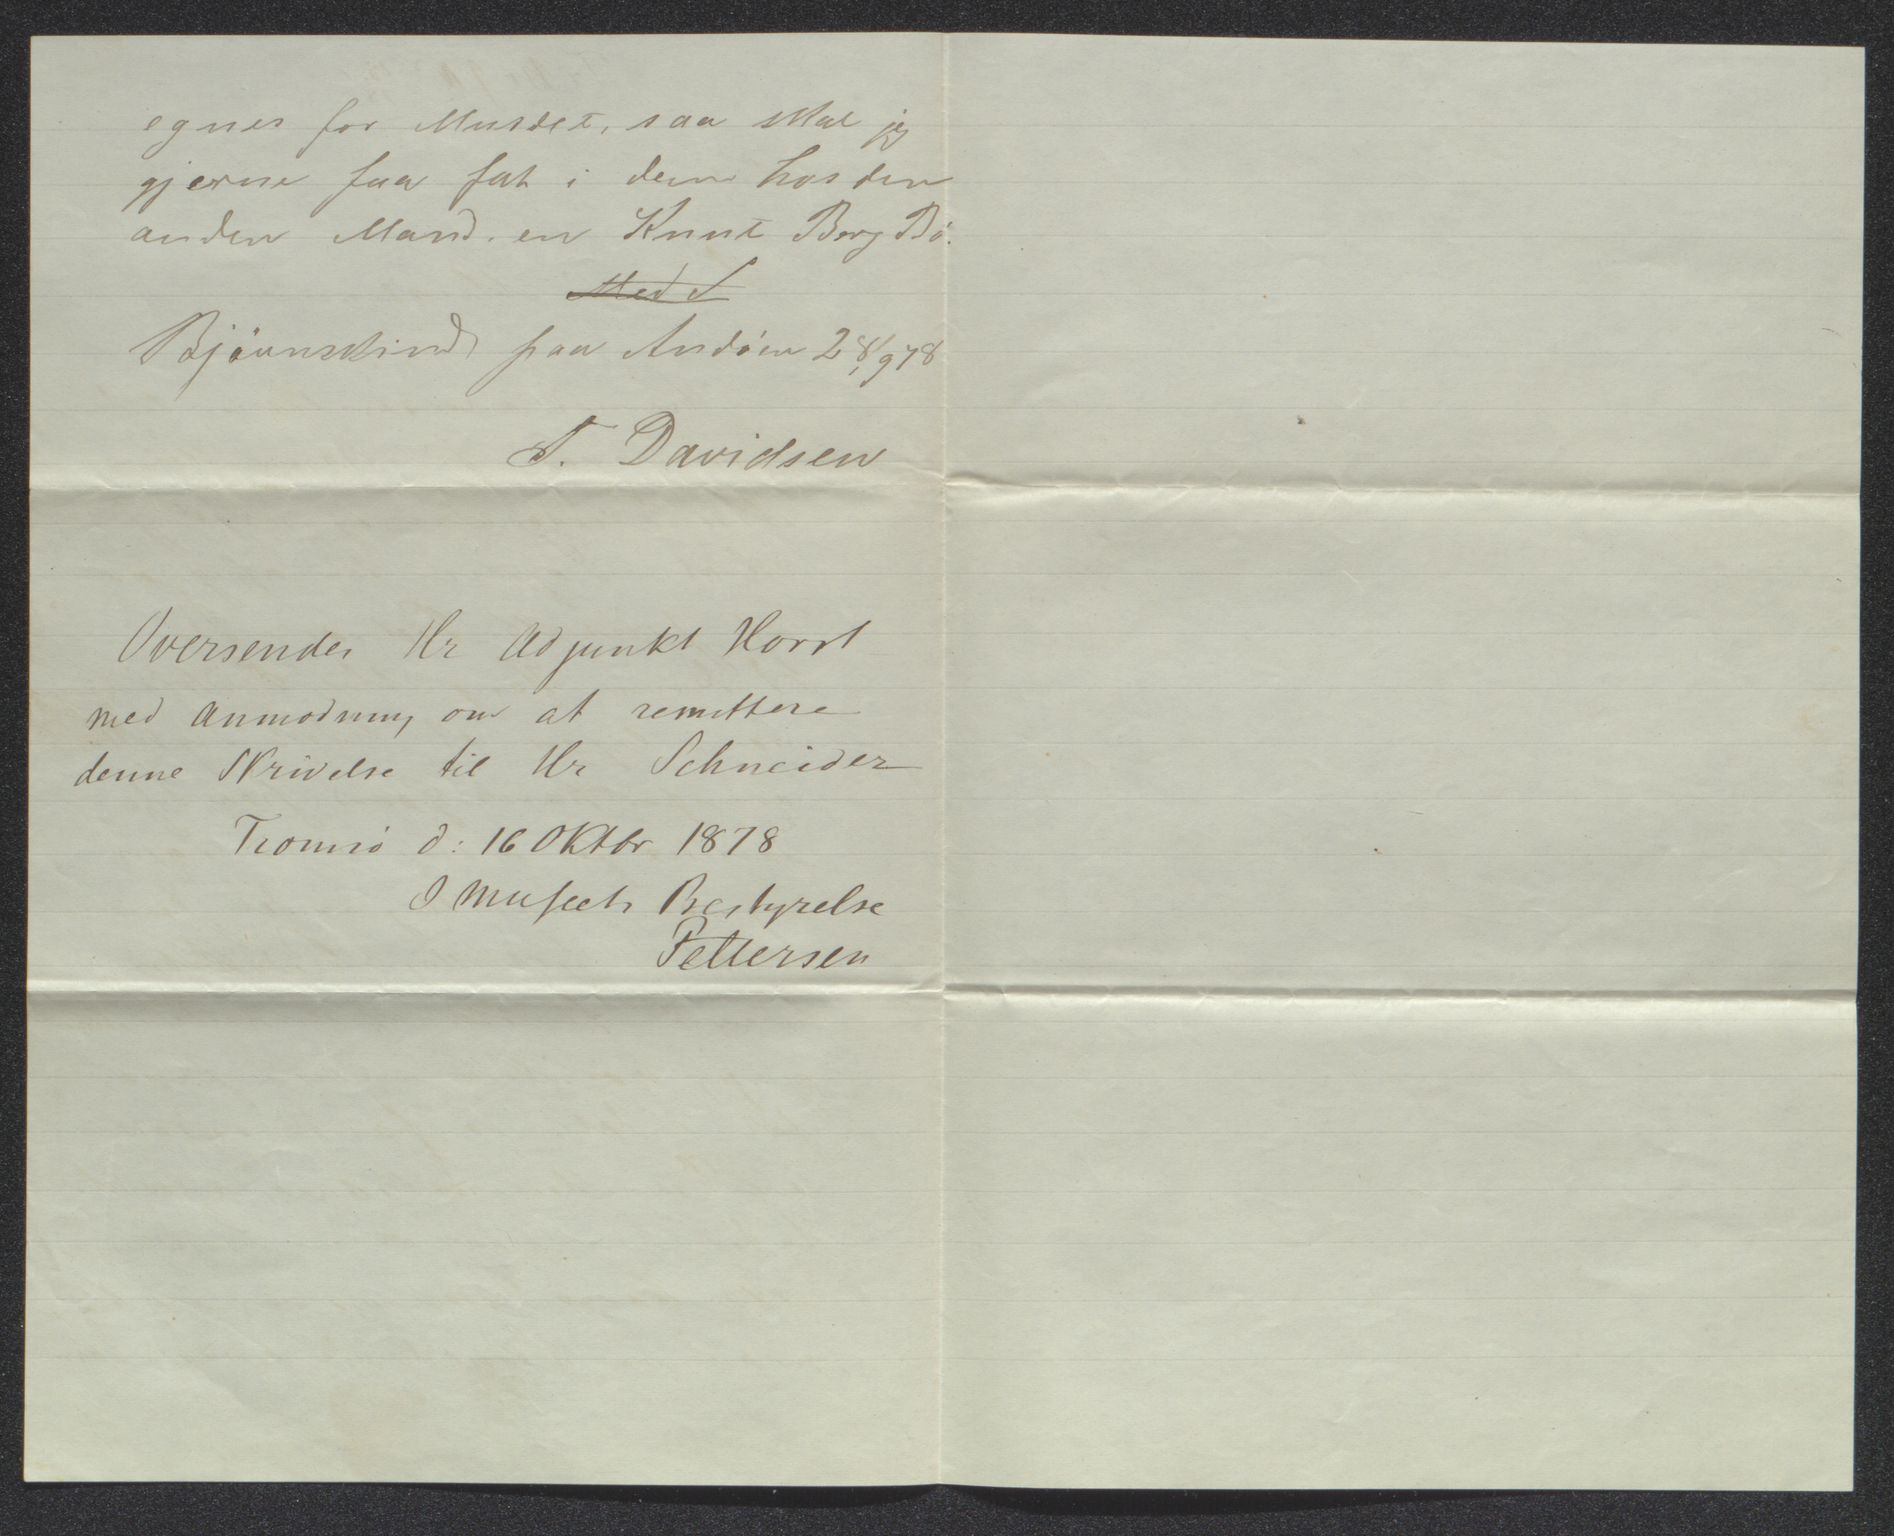 egnes for Museet, saa skal jeg
gjerne faa fat i dem hos den
anden Mand. en Knut Berg Bö.
Med S
Bjørnskind paa Andöen 28/9 78
T. Davidsen
Oversendes Hr Adjunkt Horst
med Anmodning om at remittere
denne Skrivelse til Hr Schneider
Tromsö d: 16 Oktbr 1878
I Museets Bestyrelse
Pettersen